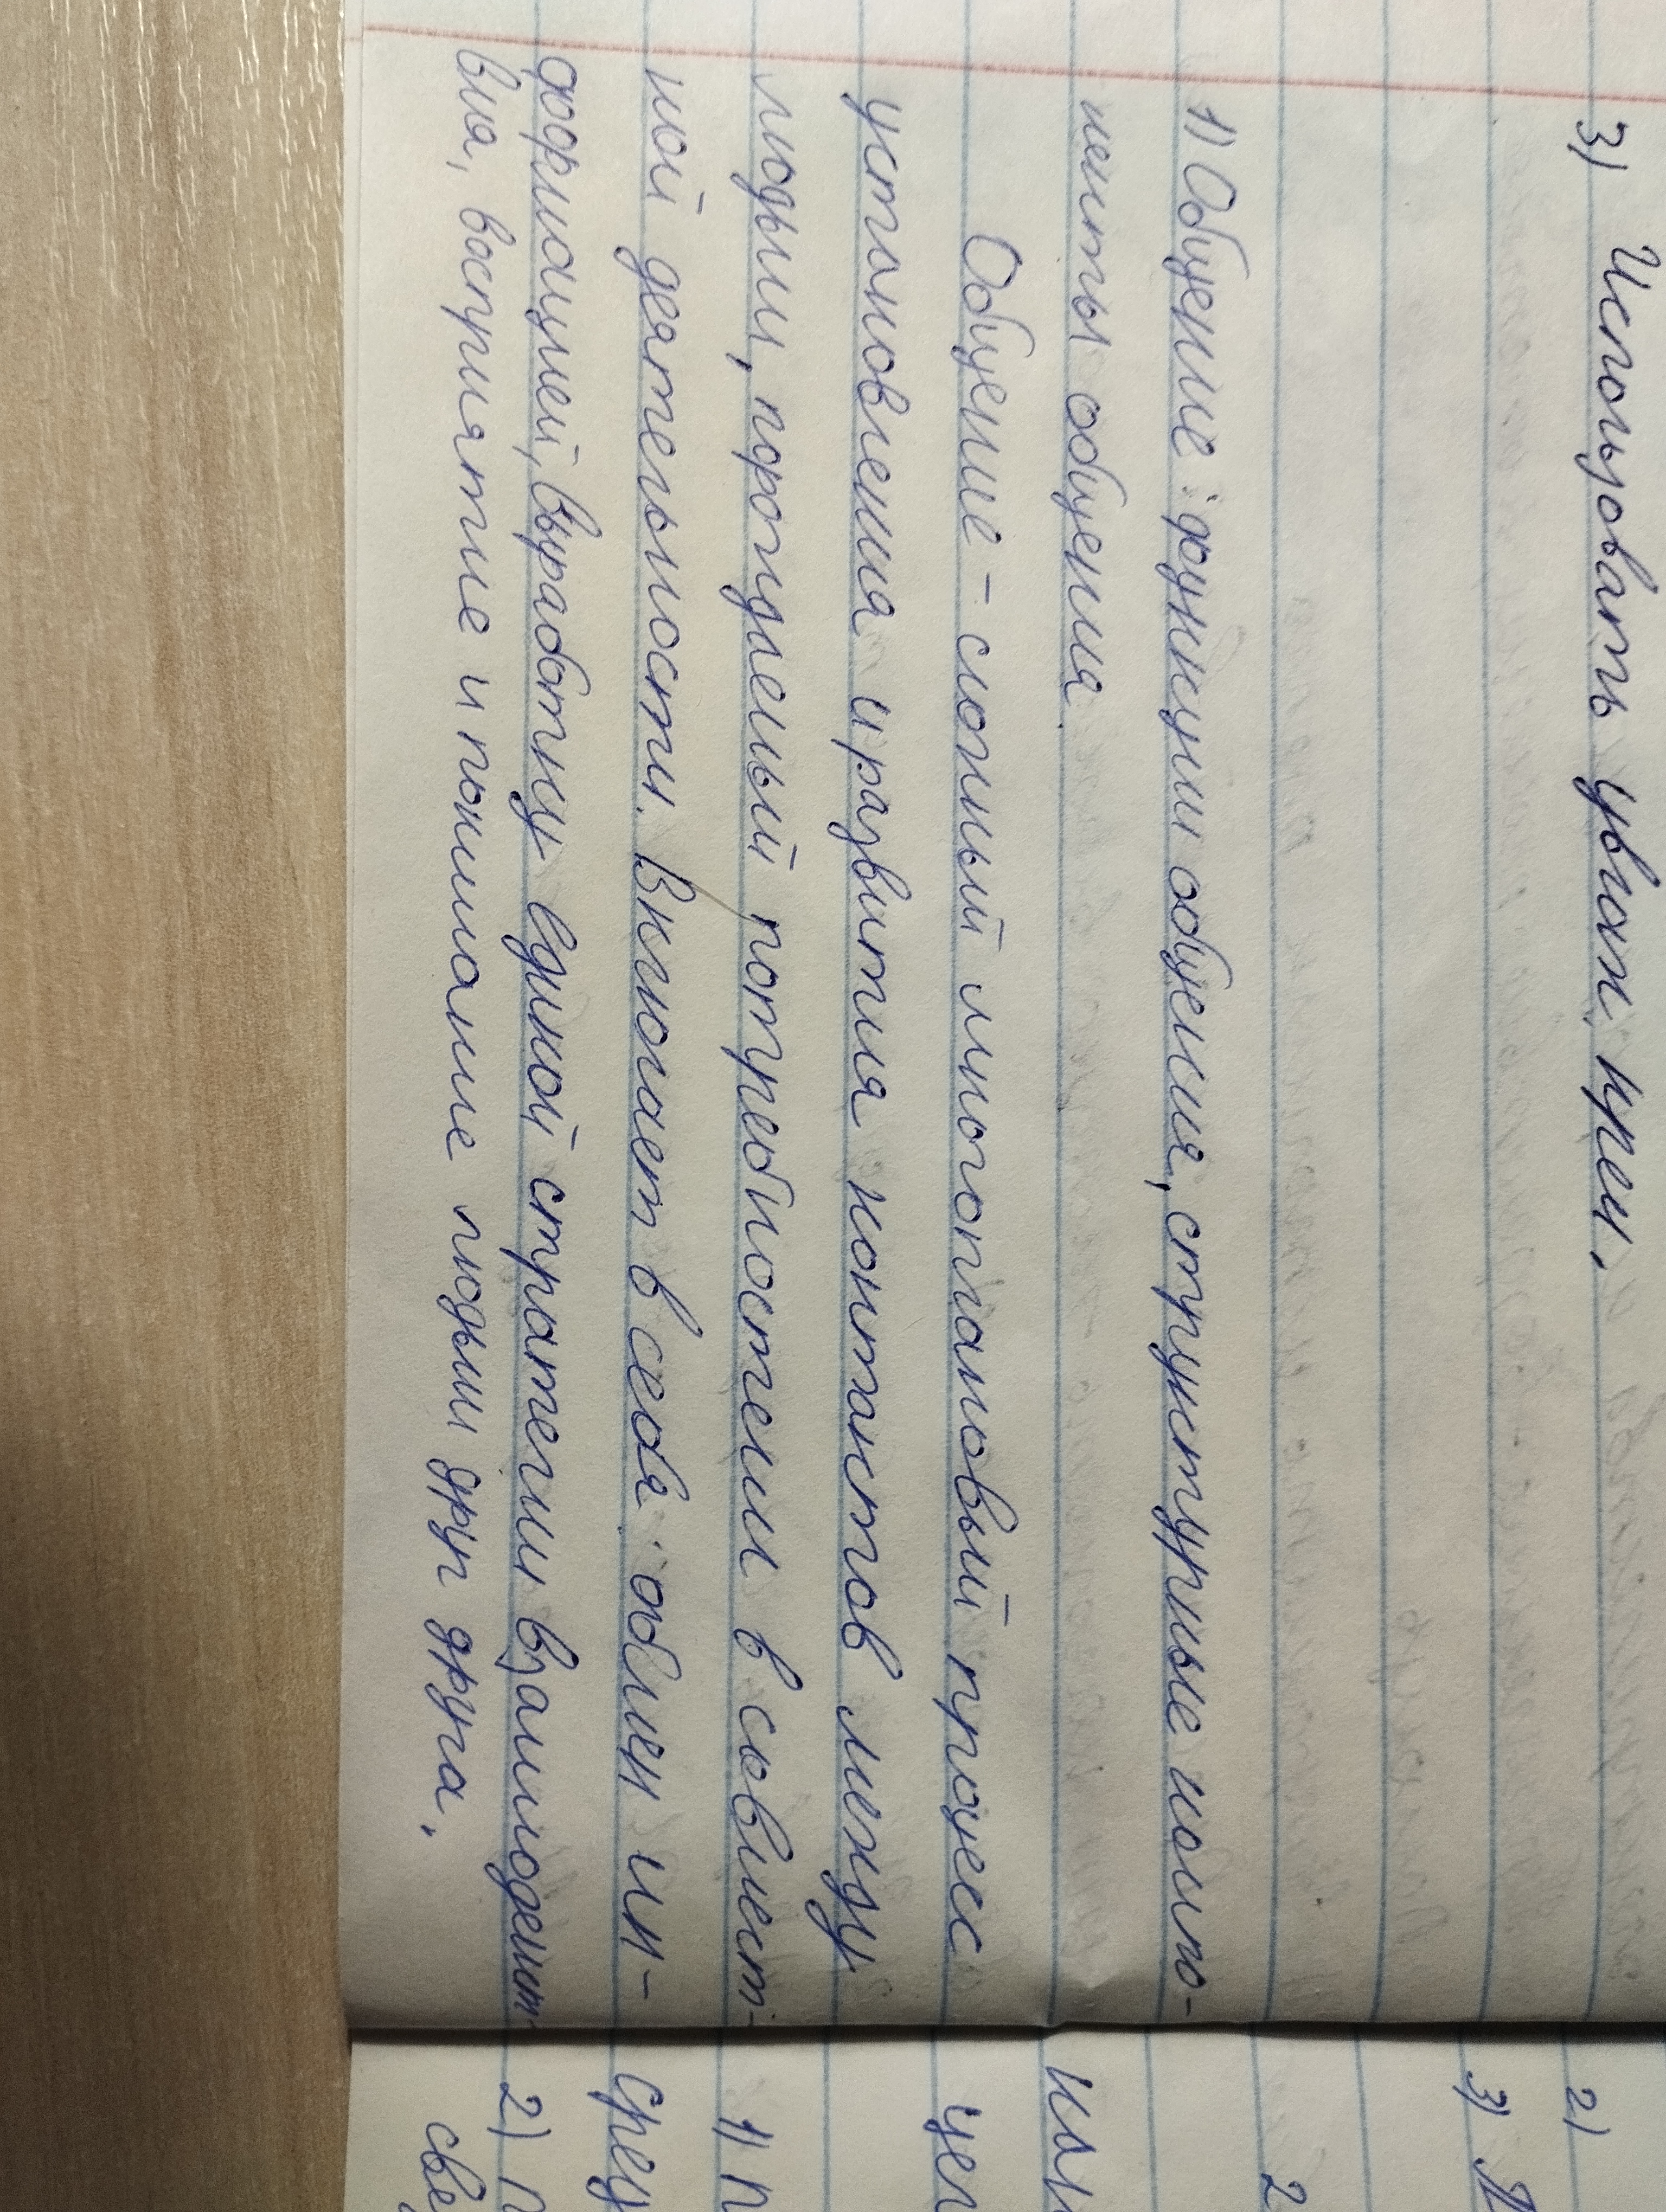 3) Использовать увлаж. крем.
1) Общение: функции общения, структурные компо-
ненты общения
Общение - сложный многоплановый процесс
установления и развития контактов между
людьми, порождаемый потребностями в совмест-
ной деятельности. Включает в себя: обмен ин-
формацией, выработку единой стратегии взаимодейст-
вия, восприятие и понимание людьми друг друга.
2)
3)
2
1) П
2) П